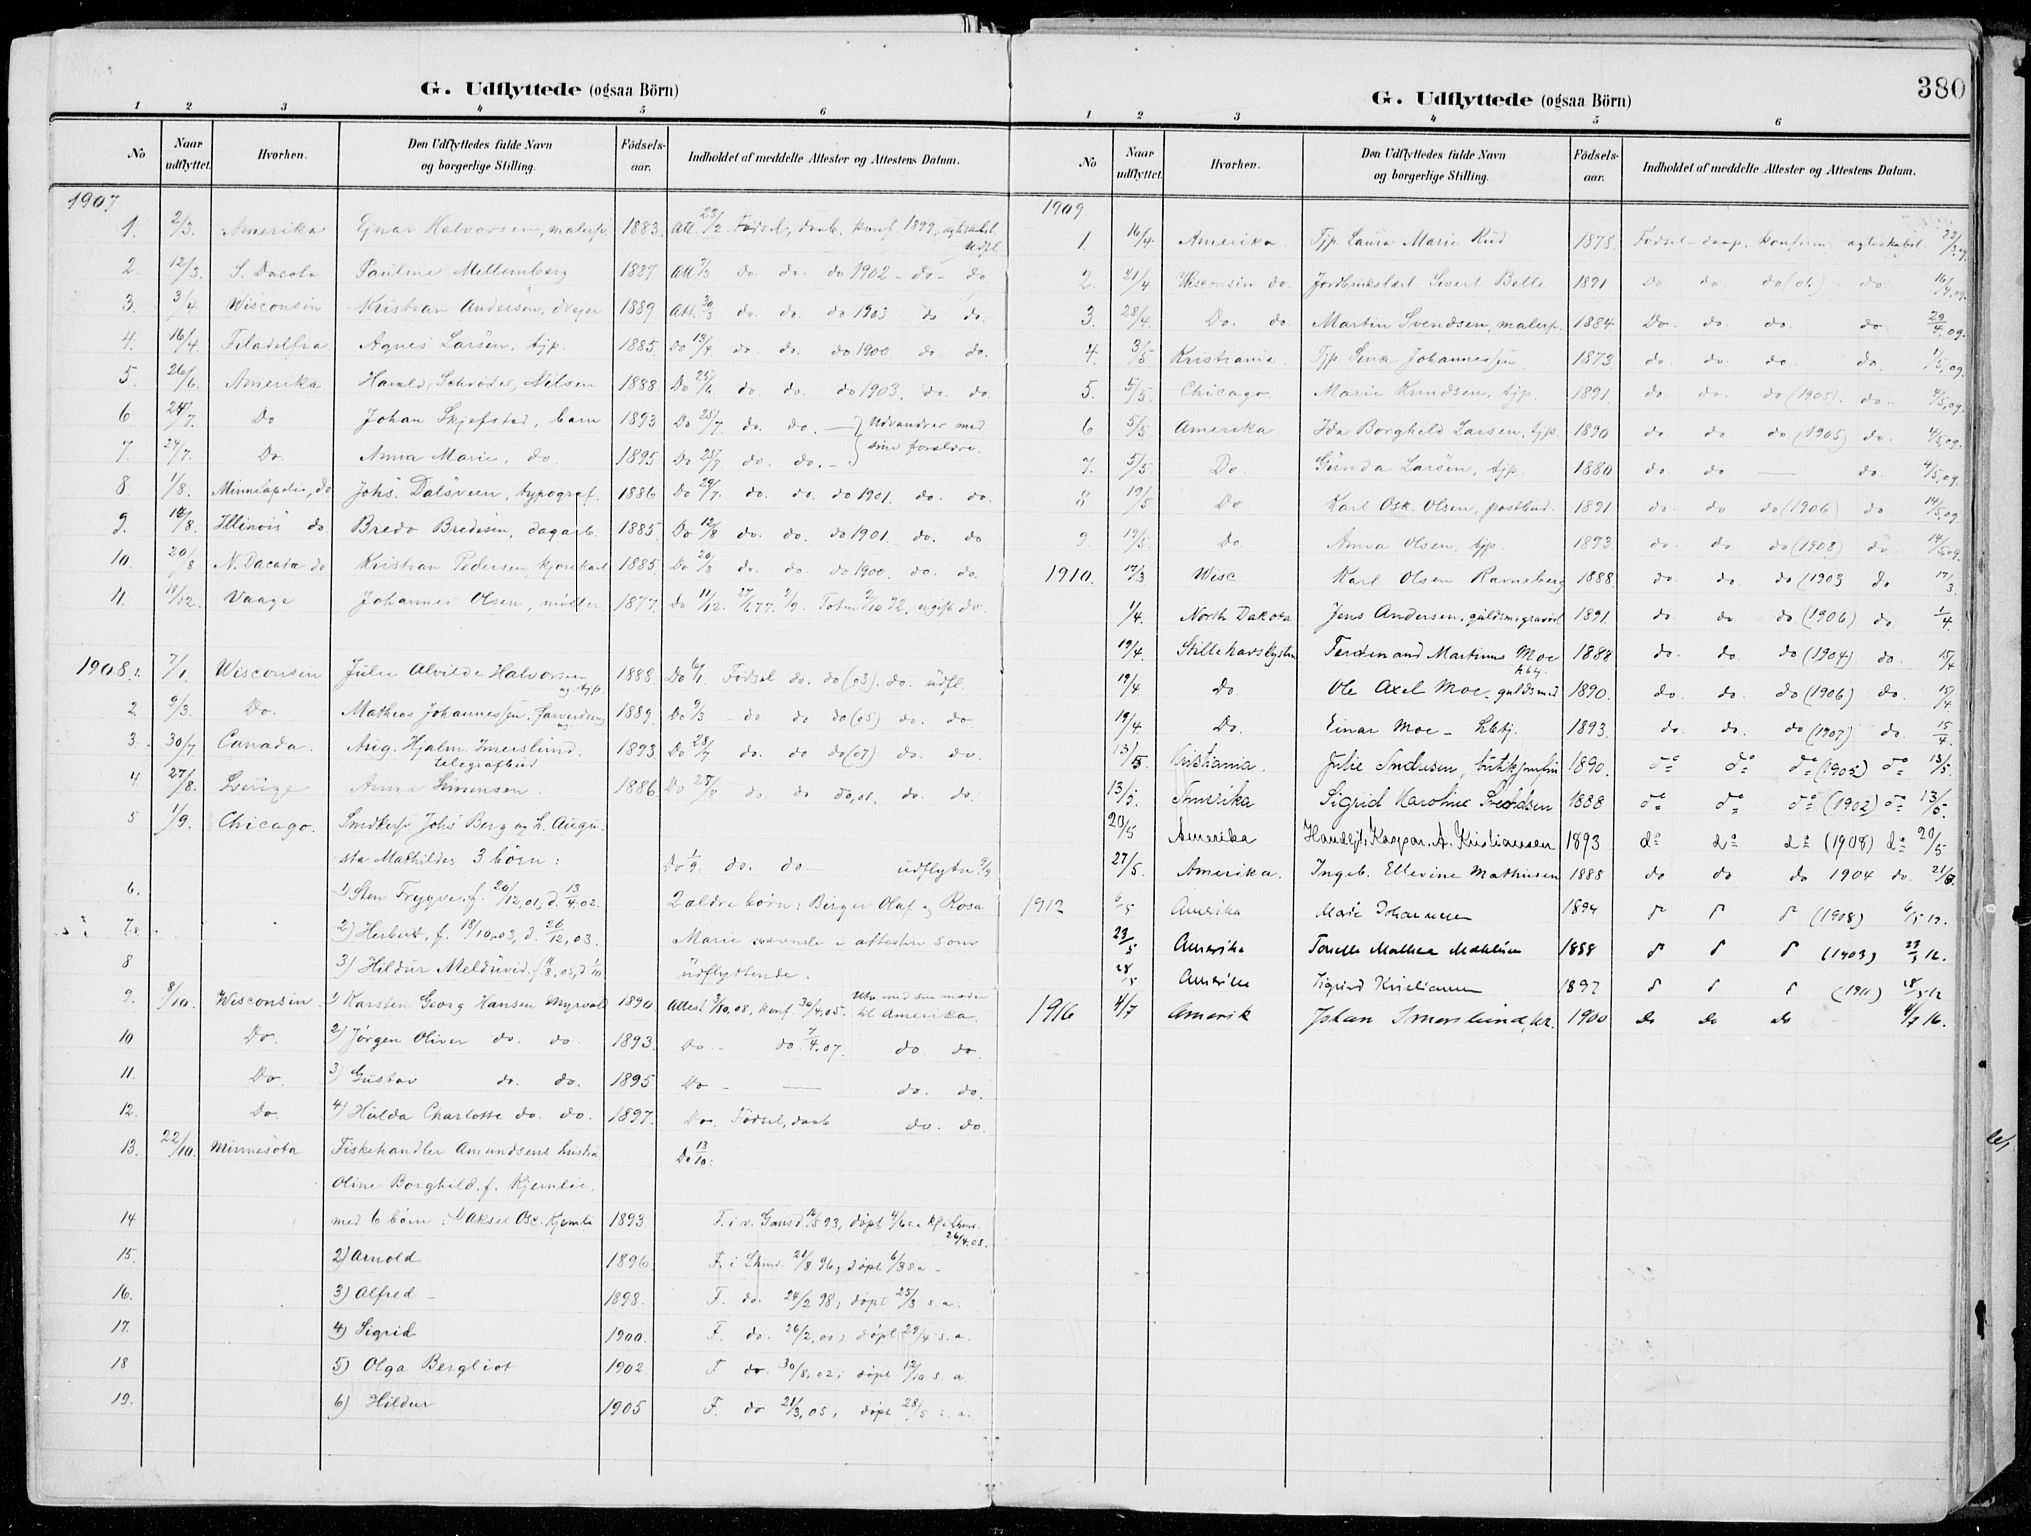 G. Udflyttede (ogsaa Börn)
1 2 3 4 5 6
No Naar udflyttet. Hvorhen. Den Udflyttedes fulde Navn og borgerlige Stilling. Födsels-aar. Indholdet af meddelte Attester og Attestens Datum.
1907
1. 2/3. Amerika Ejnar Halvorsen, malersv. 1883. Att. 23/2. Födsel, daab, konf. 1899, udfl.
2. 12/3. S. Dacota Pauline Mellemberg 1887 Att. do. do. do 1902 - do - do
3. 3/4 Wisconsin Kristian Andersen, 1889 Att. 30/3 do. do. do 1903 do do.
4. 16/4. Filadelfia Agnes Larsen, tjp. 1885. Do 13/4 do. do. do 1900. do. do.
5. 26/6. Amerika Harald Schrøder Nilsen 1888 Do 25/6. do. do. do 1903. do. do
6 24/7. Do Johan Skjefstad, barn 1893 Do 25/7 do. do. — Udvandrer med
7. 24/7. Do. Anna Marie, do. 1895 Do 25/7 do. do. - sine forældre.
8 1/8. Minneapolis, do Johs. Dalsveen, typograf. 1886 Do 29/7. do. do. do 1901. do. do.
9. 14/8. Illinois do. Bredo Bredesen, dagarb. 1885. Do 12/8 do. do. do 1901. do. do.
10. 20/8 N. Dacota do Kristian Pedersen, kjørekarl 1885. Do 20/8 do. do. do 1900. do. do.
11. 11/12. Vaage Johannes Olsen, møller 1877. Do 11/12. ugift do.
1908. 1. 7/1. Wisconsin Julie Alvilde Halvorsen 1888. Do 6/1. Födsel do. do (03). do. udfl.
2. 9/3. Do. Mathias Johannessen, 1889. Do 9/3 - do do do (05) do. do
3. 30/7. Canada. Aug. Hjalm. Imerslund, telegrafbud 1893. Do 28/7 do. do do (07) do. do.
4 27/8. Sverige Anna Simensen 1886 Do 27/8 do. do do, 01. do. do.
5 1/9. Chicago. Smedkersv. Johs Berg og h. Augu-
sta Mathildes 3 börn: Do 1/9. do. do. udflyttn.
6. 1) Sten Trygve, f. 20/12, 01, d. 13/4. 02. 2 ældre börn: Birger Olaf og Rosa
7. 2) Herbert, f. 18/10, 03, d. 20/12, 03. Marie nævnes i attesten som
8 3) Hildur f. 11/8, 05, udflyttende.
9. 8/10. Wisconsin. 1) Karsten Georg Hansen Myrvold 1890 Attest 9/10, 08, konf. 30/4, 05. Udv. med sin moder til Amerika.
10 Do. 2) Jørgen Oliver do. do. 1893. Do. - do. 7/4. 07. do. do.
11. Do. 3) Gustav do. do. 1895 Do - — do. do.
12. Do 4) Hulda Charlotte do. do. 1897. Do. Födsel, daab do. do.
13. 22/10. Minnesota Fiskehandler Amundsens hustru Do 13/10:
Oline Borghild, f. Kjernlie,
14 med 6 börn: 1) Aksel Osc. Kjernli 1893. F. i v. Gausd. 93, døpt kf. i Lhmr. 26/4. 08.
15. 2) Arnold 1896 F. i Lhmr. 21/8 96, døpt s. a -
16. 3) Alfred - 1898. F. do. 24/2 98, døpt 25/3 s. a.
17. 4) Sigrid 1900. F. do. 26/2, 00, døpt 29/4 s. a.
18 5) Olga Bergliot 1902 F do. 30/8, 02, døpt 12/10 s. a.
19. 6) Hildur 1905 F. do 21/3, 05, døpt 28/5 s. a.
G. Udflyttede (ogsaa Börn) 380
1 2 3 4 5 6
No Naar udflyttet. Hvorhen. Den Udflyttedes fulde Navn og borgerlige Stilling. Födsels-aar. Indholdet af meddelte Attester og Attestens Datum.
1909
1. 16/4. Amerika. Tjp. Laura Marie Rud 1878. Födsel - daap, konfirm. ægteskabsl.
2. 21/4 Wisconsin do. Sivert Belle 1891 Do do. do (06) - do 16/4, 09.
3. 28/4. Do. do. Martin Svendsen, malersv. 1884 Do. do do. do. 29/4. 09.
4. 3/5 Kristiania. Tjp. Lina Johannessen 1873 do. do. do. do. 1/5, 09.
5. 5/5. Chicago. Marie Knudsen, tjp. 1891. do. do. do (1905). do. 4/5, 09.
6 5/5 Amerika. Ida Borghild Larsen, tjp. 1890 do do do (1905) do. 4/5, 09.
7. 5/5. Do. Gunda Larsen, tjp. 1880 do. do — do 4/5, 09.
8 19/5 Do Karl Osk. Olsen, postbud. 1891 do. do. do (1906) do. 14/5, 09.
9 19/5. Do. Anna Olsen, tjp. 1893. do. do. do (1908) do. 14/5 09.
1910. 17/3 Wisc Karl Olsen Ravneberg 1888. do. do. do (1903 do 17/3.
1/4. North Dakota Jens Andersen, guldsm, gravør 1891. do. do. do. (1906) do 1/4.
19/4. Stillehavskysten Ferdinand Martinus Moe 1888 do. do. do (1904) do. 15/4
19/4 do Ole Axel Moe - guldsmed 1890. do. do. do (1906) do. 15/4.
19/4 Do. Einar Moe - 1893. do. do. do (1907) do. 15/4.
13/5 Kristiania. Julie Andersen, 1890. do do do (1905) do 13/5.
13/5. Amerika Sigrid Karoline Svendsen 1888 do do do (1902) do 13/5
20/5 Amerika Handelsb. Kaspar A. Kristiansen 1893 do do do (1908) do 20/5
27/5. Amerika. Ingeb. Ellevine Mathisen 1888 do do do 1904 do.
1912 6/5 Amerika Marie Johannesen 1894 (1908) 6/5 12.
23/5 Amerika Mathea 1888 (1903)
28/5 Amerika Sigurd Kristiansen 1897 (1911) 28/5 12
1916 4/7 Amerik Johan Imerslund, 1900 do do do 4/7 16.